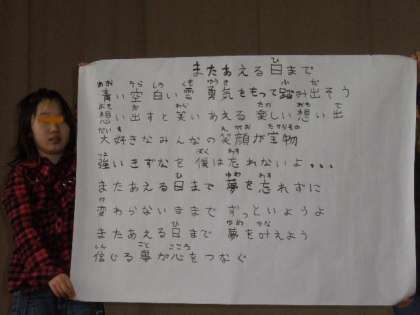 またあえる日まで
青い空白い雲 勇気をもって踏み出そう
想い出すと笑いあえる楽しい想い出
大好きなみんなの笑顔が宝物
強いきずなを 僕は忘れないよ...
またあえる日まで 夢を忘れずに
変わらないままで ずっといようよ
またあえる日まで 夢を叶えよう
信じる事が心をつなぐ